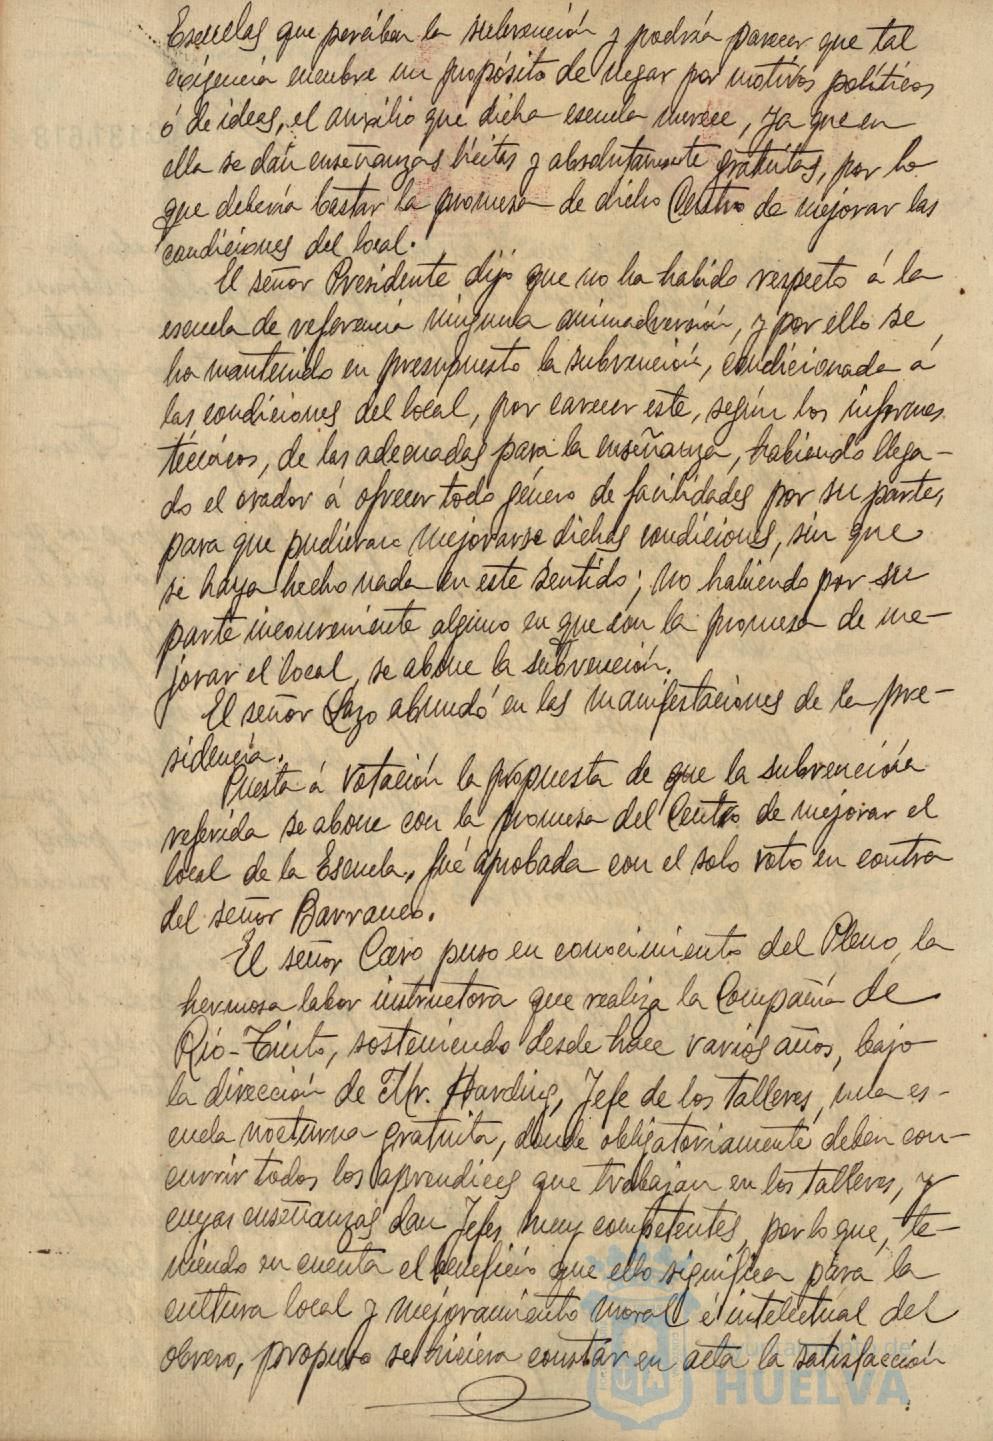 Escuelas que perciban la subvención y podría parecer que tal
exigencia encubre un propósito de negar por motivos políticos
ó de ideas, el auxilio que dicha escuela merece, ya que en
ella se dan enseñanzas lícitas y absolutamente gratuitas, por lo
que debería bastar la promesa de dicho Centro de mejorar las
condiciones del local.
El señor Presidente dijo que no ha habido respecto á la
escuela de referencia ninguna animadversión, y por ello se
ha mantenido en presupuesto la subvención, condicionada á
las condiciones del local, por carecer este, según los informes
técnicos, de las adecuadas para la enseñanza, habiendo llega-
do el orador á ofrecer todo género de facilidades por su parte,
para que pudieran mejorarse dichas condiciones, sin que
se haya hecho nada en este sentido; no habiendo por su
parte inconveniente alguno en que con la promesa de me-
jorar el local, se abone la subvención.
El señor Lazo abundó en las manifestaciones de la pre-
sidencia.
Puesta á votación la propuesta de que la subvención
referida se abone con la promesa del Centro de mejorar el
local de la Escuela, fué aprobada con el solo voto en contra
del señor Barranco.
El señor Caro puso en conocimiento del Pleno, la
hermosa labor instructora que realiza la Compañía de
Rio-Tinto, sosteniendo desde hace varios años, bajo
la dirección de Mr. Harding, Jefe de los talleres, una es-
cuela nocturna gratuita, donde obligatoriamente deben con-
currir todos los aprendices que trabajan en los talleres, y
cuyas enseñanzas dan Jefes muy competentes, por lo que, te-
niendo en cuenta el beneficio que ello significa para la
cultura local y mejoramiento moral é intelectual del
obrero, propuso se hiciera constar en acta la satisfacción
Ayuntamiento de
HUELVA